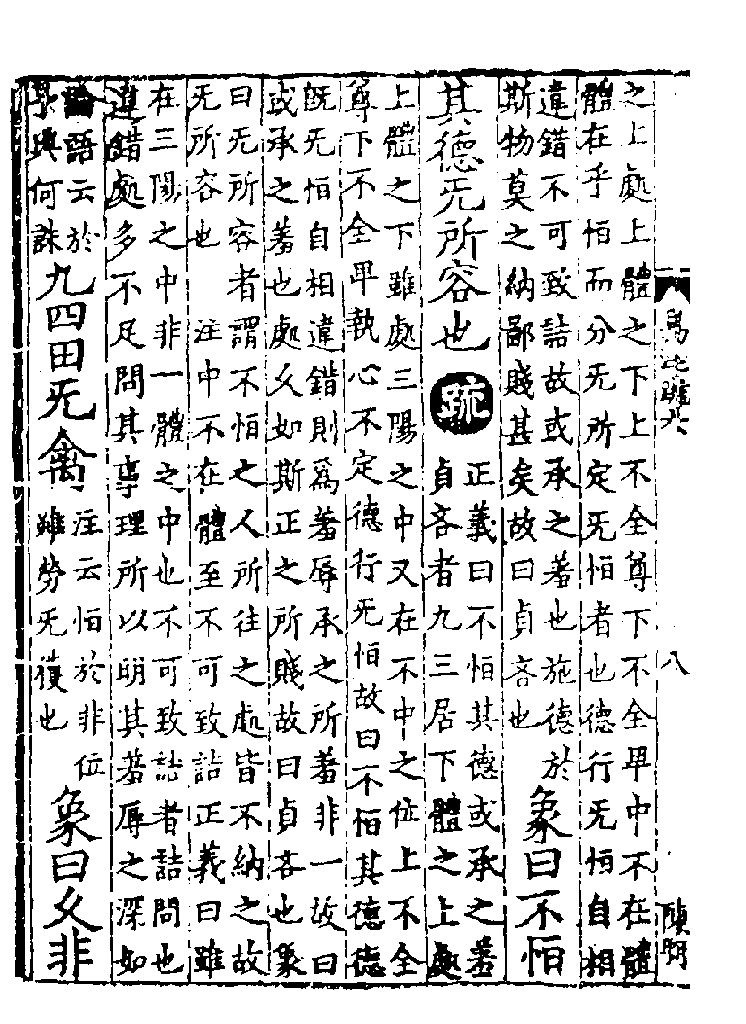 八
之上處上體之下上不全尊下不全卑中不在體
體在乎恒而分无所定无恒者也德行无恒自相
違錯不可致詰故或承之羞也施德於
斯物莫之納鄙賤甚矣故曰貞吝也
象曰不恒
其德无所容也
疏
正義曰不恒其德或承之羞
貞吝者九三居下體之上處
上體之下雖處三陽之中又在不中之位上不全
尊下不全卑執心不定德行无恒故曰不恒其德德
既无恒自相違錯則為羞辱承之所羞非一故曰
或承之羞也處久如斯正之所賤故曰貞吝也象
曰无所容者謂不恒之人所往之處皆不納之故
无所容也 注中不在體至不可致詰正義曰雖
在三陽之中非一體之中也不可致詰者詰問也
違錯處多不足問其事理所以明其羞辱之深如
論語云於
予與何誅
九四田无禽
注云恒於非位
雖勞无獲也
象曰久非